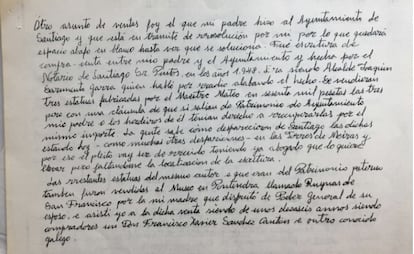 Otro asunto de ventas foy el que mi padre hizo al Ayuntamiento de
Santiago y que esta en tramite de resolución por mi por lo que quedará
espacio abajo en blanco hasta ver que se soluciona. Fue escritura de
compra-venta entre mio padre y el Ayuntamiento y hecho por el
Notario de Santiago Sr. Pintos en los años 1.948. Era siendo Alcalde Joaquin
Sarmiento Garra quien hablo por radio alabando el hecho. Se vendieron
tres estatuas fabricadas por el Maestro Mateo en sesenta mil pesetas las tres
pero con una clausula de que si salian de Patrimonio de Ayuntamiento
mio padre o los herdeiros de él tenian derecho a recuperarlas por el
mismo importe. La gente sabe como desparecieron de Santiago las dichas
estando hoy - como muchas otras desparaciones - en las Torres de Meiras y
por eso el pleito vay lez de vencido teniendo ya abogado que lo quiere
llevar pero faltandome la localización de la escritura.
Las restantes estatuas del mesmo autor e que eran del Patrimonio paterno
tambien furon vendidas al Museo en Pontevedra llamado
San Francisco por la mi madre que disfrutó de Poder General de su
esposo, e asistí yo a la dicha venta siendo de unos dieciseis annos siendo
compradores un Don Francisco Xavier Sanchez Canton e outro conocido
galego.